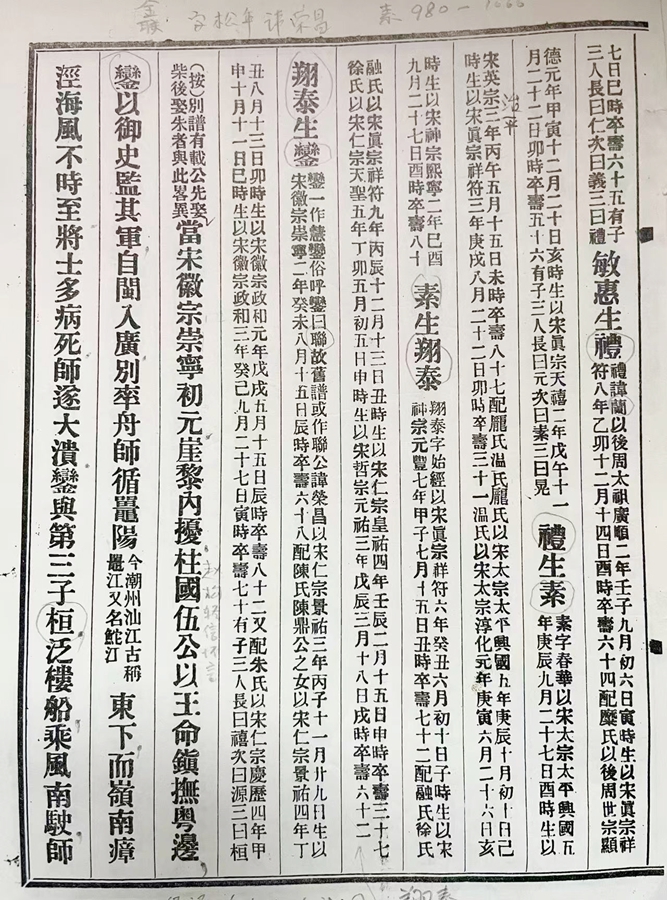 字松年諱榮昌
素 980-1066
七日巳時卒壽六十五有子
三人長曰仁次曰義三曰禮
敏惠生禮
禮諱蘭以後周太祖廣順二年壬子九月初六日寅時生以宋眞宗祥
符八年乙卯十二月十四日酉時卒壽六十四配糜氏以後周世宗顯
德元年甲寅十二月二十日亥時生以宋眞宗天禧二年戊午十一
月二十二日卯時卒壽五十六有子三人長曰元次曰素三曰晃
禮生素
素字春華以宋太宗太平興國五
年庚辰九月二十七日酉時生以
治平
宋英宗三年丙午五月十五日未時卒壽八十七配龐氏温氏龐氏以宋太宗太平興國五年庚辰十月初十日己
時生以宋眞宗祥符三年庚戌八月二十二日卯時卒壽三十一温氏以宋太宗淳化元年庚寅六月二十六日亥
時生以宋神宗熙寧二年巳酉
九月二十七日酉時卒壽八十
素生翔泰
翔泰字始經以宋眞宗祥符六年癸丑六月初十日子時生以宋
神宗元豐七年甲子七月十五日丑時卒壽七十二配融氏徐氏
融氏以宋眞宗祥符九年丙辰十二月十三日丑時生以宋仁宗皇祐四年壬辰二月十五日申時卒壽三十七
徐氏以宋仁宗天聖五年丁卯五月初五日申時生以宋哲宗元祐三年戊辰三月十八日戌時卒壽六十二
翔泰生鑾
鑾一作慧鑾俗呼鑾曰聯故舊譜或作聯公諱榮昌以宋仁宗景祐三年丙子十一月卅九日生以
宋徽宗崇寧二年癸未八月十五日辰時卒壽六十八配陳氏陳鼎公之女以宋仁宗景祐四年丁
丑八月十三日卯時生以宋徽宗政和元年戊戌五月十五日辰時卒壽八十二又配朱氏以宋仁宗慶歷四年甲
申十月十一日巳時生以宋徽宗政和三年癸己九月二十七日寅時卒壽七十有子三人長曰禧次曰源三曰桓
(按)別譜有載公先娶
柴後娶朱者與此畧異
當宋徽宗崇寧初元崖黎內擾柱國伍公以王命鎮撫粵邊
鑾以御史監其軍自閩入廣別率舟師循鼉陽
今潮州汕江古稱
鼉江又名鮀江
東下而嶺南瘴
涇海風不時至將士多病死師遂大潰鑾與第三子桓泛樓船乘風南駛師
翔泰